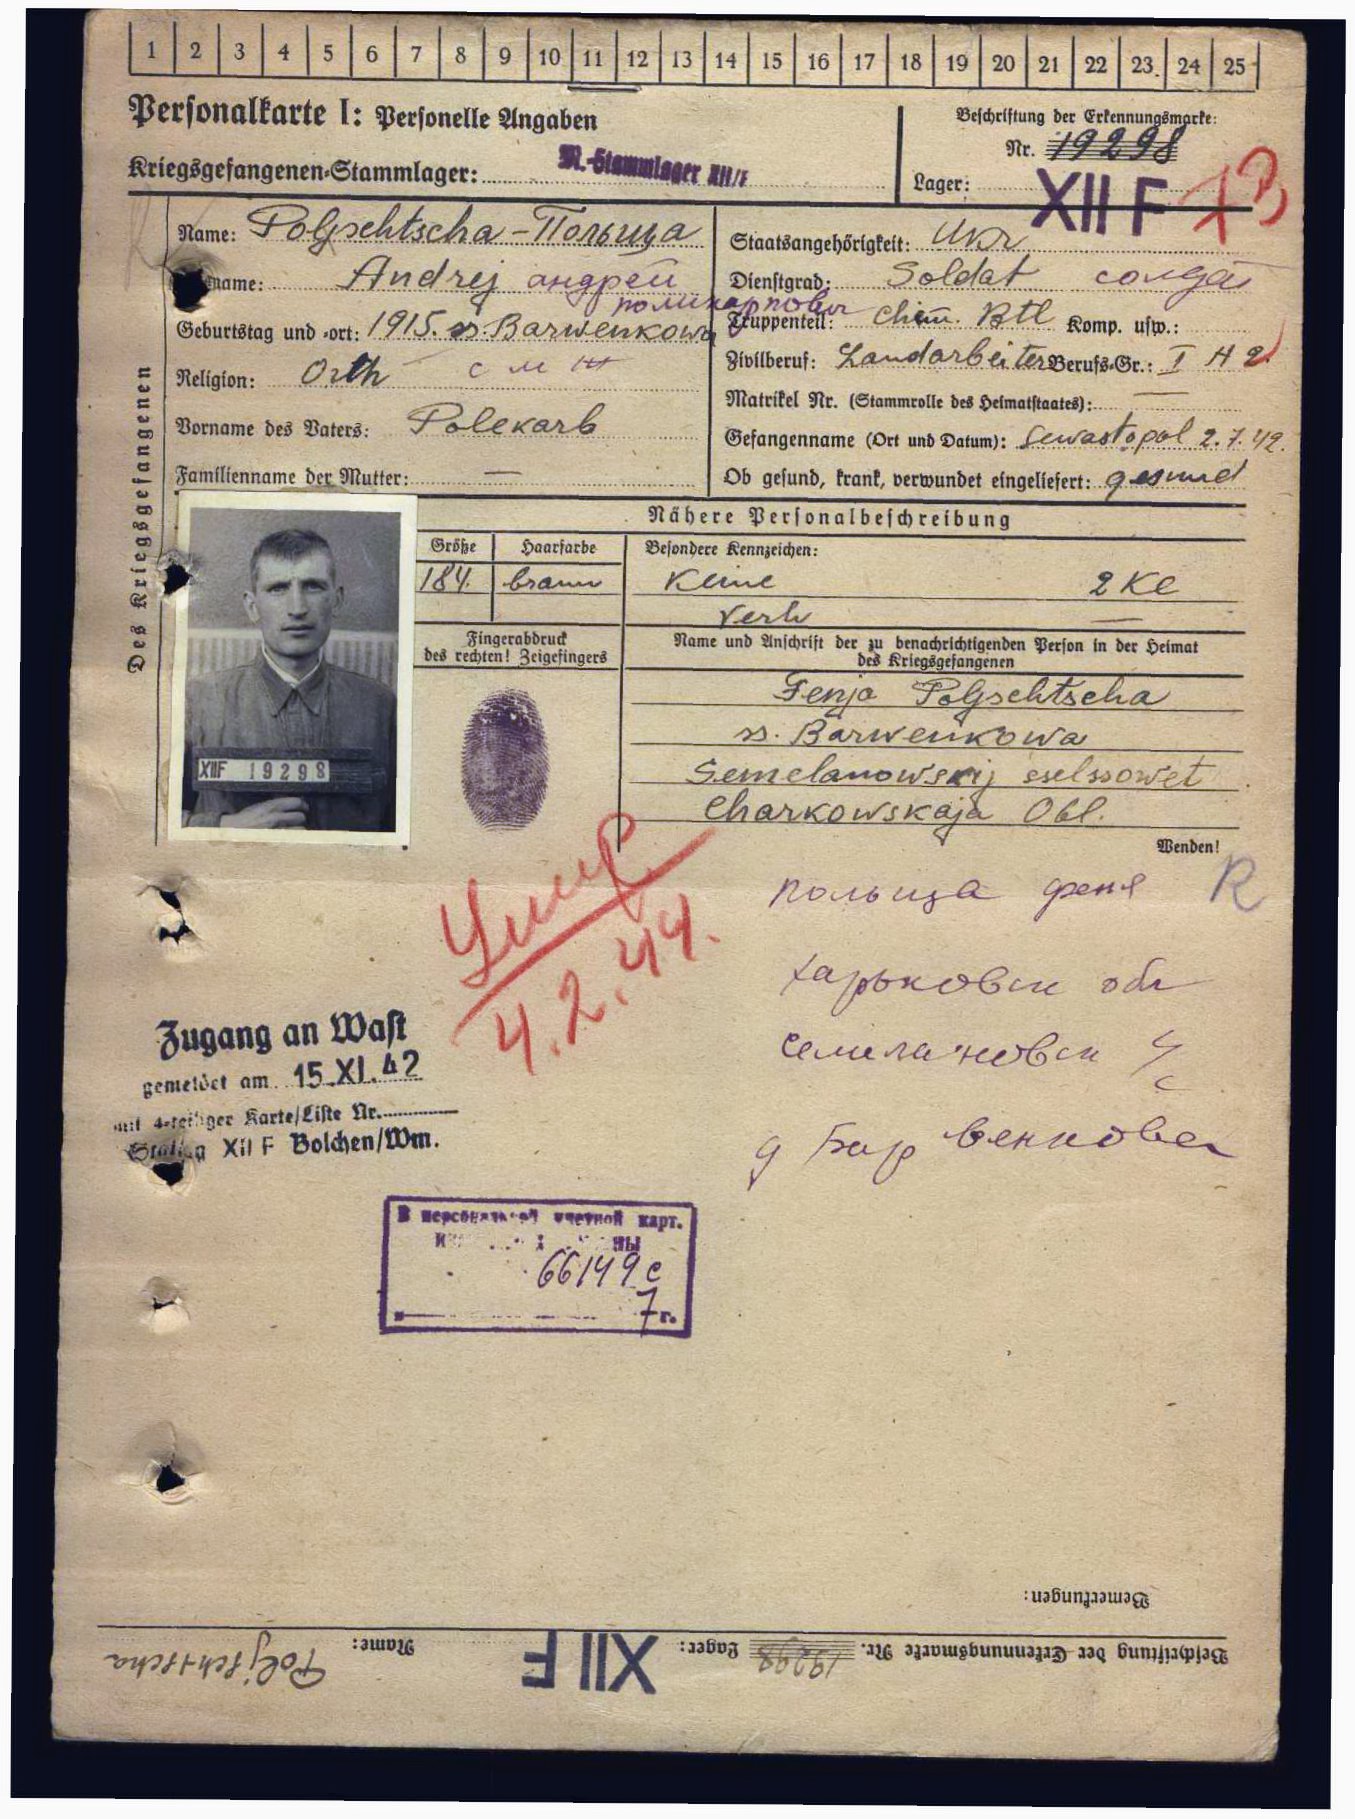 1 2 3 4 5 6 7 8 9 10 11 12 13 14 15 16 17 18 19 20 21 22 23 24 25
Personalkarte I: Personelle Angaben
Kriegsgefangenen-Stammlager: M.-Stammlager XII/F
Beschriftung der Erkennungsmarke:
Nr. 19298
Lager: XII F
Des Kriegsgefangenen
Name: Poljschtscha - Польща
name: Andrej андрей
поликарпович
Geburtstag und -ort: 1915. Barwenkowa
Religion: Orth
Vorname des Vaters: Polekarb
Familienname der Mutter: —
Staatsangehörigkeit: Ukr
Dienstgrad: Soldat солдат
Truppenteil: chem. Btl Komp. usw.:
Zivilberuf: Landarbeiter Berufs-Gr.: I H 2
Matrikel Nr. (Stammrolle des Heimatstaates): —
Gefangenname (Ort und Datum): Sewastopol 2.7.42.
Ob gesund, krank, verwundet eingeliefert: gesund
Nähere Personalbeschreibung
Größe Haarfarbe Besondere Kennzeichen:
184. braun Keine 2 Ke
Verh —
Fingerabdruck
des rechten! Zeigefingers
Name und Anschrift der zu benachrichtigenden Person in der Heimat
des Kriegsgefangenen
Fenja Poljschtscha
Barwenkowa
Semelanowskij sselssowet
Charkowskaja Obl.
XIIF 19298
Wenden!
R
Умер
4.2.44.
польща феня
харьковск обл
семилановск с/с
д Барвенкова
Zugang an Wast
gemeldet am 15.XI.42
mit 4-teiliger Karte/Liste Nr.
Stalag XII F Bolchen/Wm.
В персональной учетной карт.
66149 с
7 г.
Bemerkungen:
Beschriftung der Erkennungsmarke Nr. 19298 Lager: XII F Name: Poljschtscha